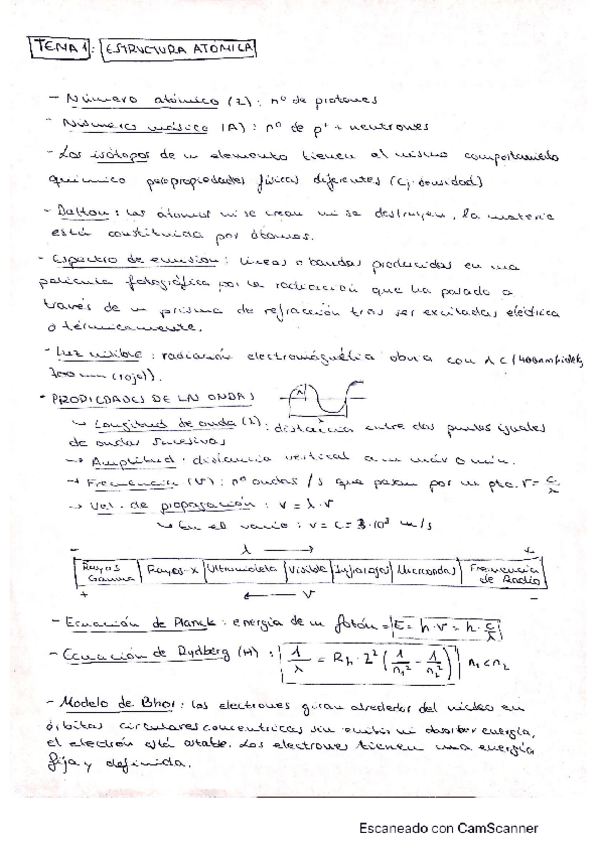 TEMA 1: ESTRUCTURA ATÓMICA
- Número atómico (Z): nº de protones
- Número másico (A): nº de p⁺ + neutrones
- Los isótopos de un elemento tienen el mismo comportamiento
químico pero propiedades físicas diferentes (Ej: densidad)
- Dalton: Los átomos ni se crean ni se destruyen, la materia
está constituida por átomos.
- Espectro de emisión: líneas o bandas producidas en una
película fotográfica por la radiación que ha pasado a
través de un prisma de refracción tras ser excitadas eléctrica
o térmicamente.
- Luz visible: radiación electromagnética con λ
700 nm (rojo)).
- PROPIEDADES DE LAS ONDAS
Longitud de onda (λ): distancia entre dos puntos iguales
de ondas sucesivas
→ Amplitud: distancia vertical a un máx o mín.
→ Frecuencia (ν): nº ondas/s que pasan por un pto. ν = c/λ
→ Vel. de propagación: v = λ·ν
En el vacío: v = c = 3·10⁸ m/s
- λ → +
Rayos Gamma | Rayos-X | Ultravioleta | Visible | Infrarrojos | Microondas | Frecuencia de Radio
+ ← ν -
- Ecuación de Planck: energía de un fotón = E = h·ν = h·c/λ
- Ecuación de Rydberg (H): 1/λ = Rh·Z²(1/n₁² - 1/n₂²) n₁<n₂
- Modelo de Bhor: los electrones giran alrededor del núcleo en
órbitas circulares concentricas sin emitir ni absorber energía,
el electrón está estable. Los electrones tienen una energía
fija y definida.
Escaneado con CamScanner